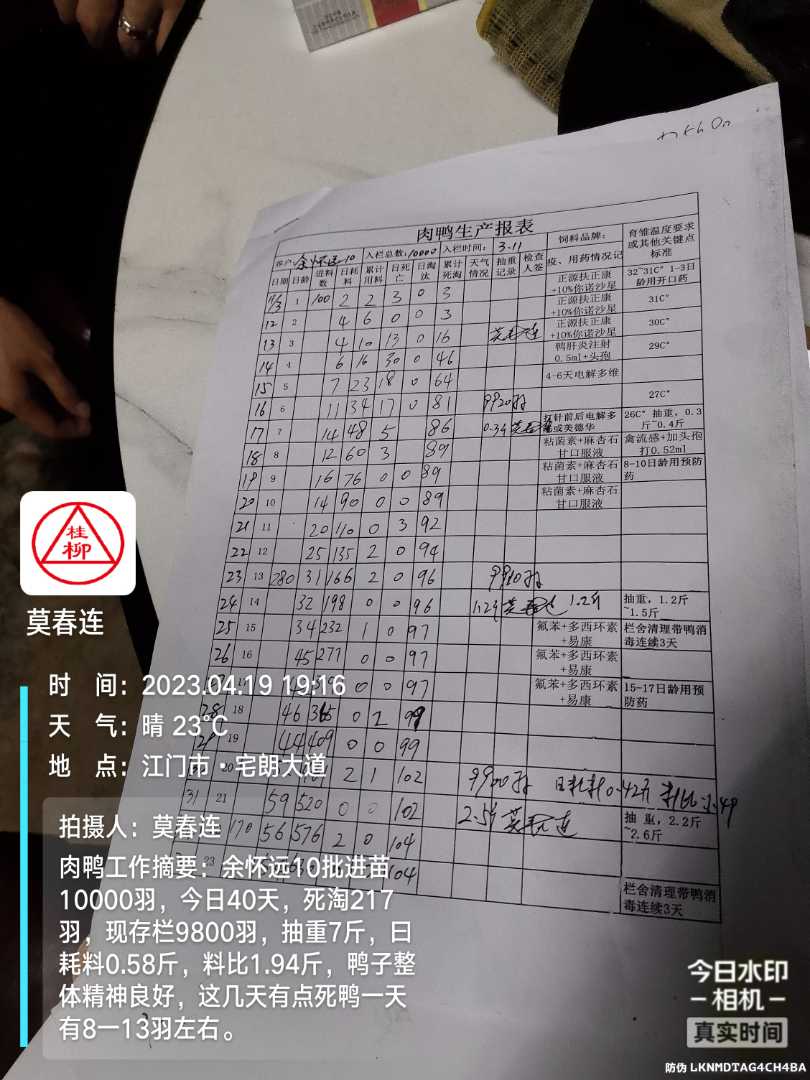 肉鸭生产报表
客户: 余怀远10 入栏总数: 10000 入栏时间: 3-11 饲料品牌: 育雏温度要求或其他关键点标准
日期 日龄 进料数 日耗料 累计用料 日死亡 日淘汰 累计死淘 天气情况 抽重记录 检查人签 疫、用药情况记
1 100 2 2 3 0 3 正源扶正康+10%你诺沙星 32~31C° 1-3日龄用开口药
12 2 4 6 0 0 3 正源扶正康+10%你诺沙星 31C°
13 3 4 10 13 0 16 莫春连 正源扶正康+10%你诺沙星 30C°
14 4 6 16 30 0 46 鸭肝炎注射0.5ml+头孢 29C°
15 5 7 23 18 0 64 4-6天电解多维
16 6 11 34 17 0 81 9920羽 27C°
17 7 14 48 5 86 0.34 莫春连 针前后电解多或美德华 26C° 抽重，0.3斤~0.4斤
18 8 12 60 3 89 粘菌素+麻杏石甘口服液 禽流感+加头孢打0.52ml
19 9 16 76 0 0 89 粘菌素+麻杏石甘口服液 8-10日龄用预防药
20 10 14 90 0 0 89 粘菌素+麻杏石甘口服液
21 11 20 110 0 3 92
22 12 25 135 2 0 94
23 13 280 31 166 2 0 96 9910羽
24 14 32 198 0 0 96 莫春连 1.2斤 抽重，1.2斤~1.5斤
25 15 34 232 1 0 97 氟苯+多西环素+易康 栏舍清理带鸭消毒连续3天
26 16 45 277 0 0 97 氟苯+多西环素+易康
0 0 97 氟苯+多西环素+易康 15-17日龄用预防药
28 18 46 365 0 2 99
19 44 409 0 0 99
20 2 1 102 9900羽 日耗料0.42斤 料比
31 21 59 520 0 0 102 莫春连 抽重，2.2斤~2.6斤
170 56 576 2 0 104
23 104 栏舍清理带鸭消毒连续3天
桂柳
莫春连
时 间: 2023.04.19 19:16
天 气: 晴 23℃
地 点: 江门市·宅朗大道
拍摄人: 莫春连
肉鸭工作摘要: 余怀远10批进苗
10000羽，今日40天，死淘217
羽，现存栏9800羽，抽重7斤，日
耗料0.58斤，料比1.94斤，鸭子整
体精神良好，这几天有点死鸭一天
有8一13羽左右。
今日水印
-相机-
真实时间
防伪 LKNMDTAG4CH4BA